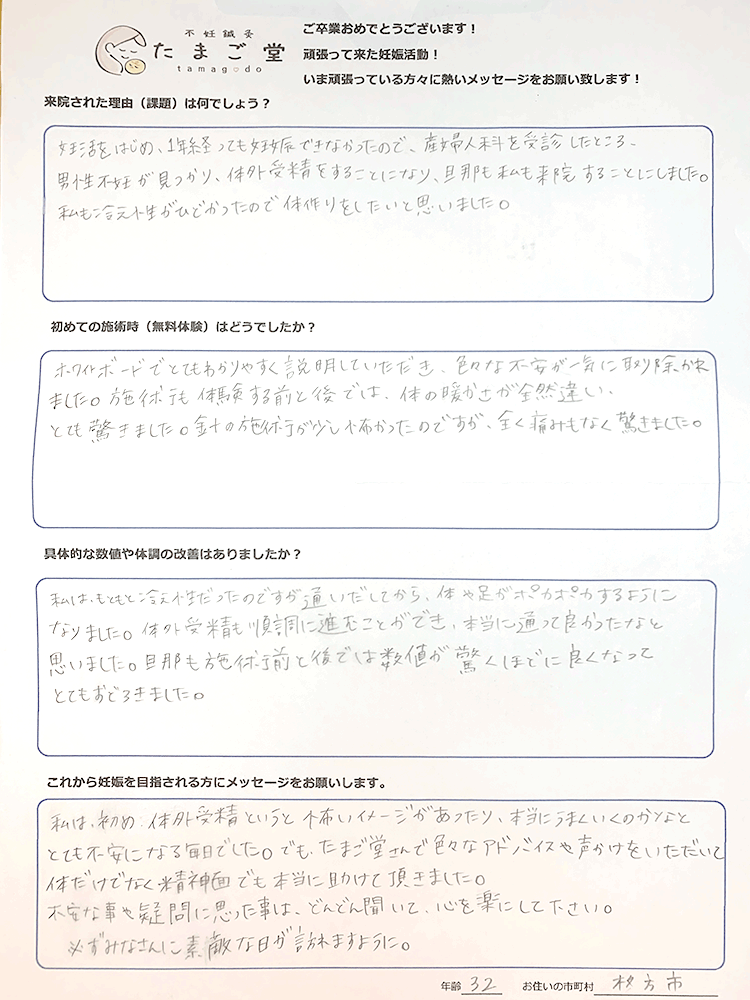 不妊鍼灸
たまご堂
tamagodo
ご卒業おめでとうございます！
頑張って来た妊娠活動！
いま頑張っている方々に熱いメッセージをお願い致します！
来院された理由（課題）は何でしょう？
妊活をはじめ、1年経っても妊娠できなかったので、産婦人科を受診したところ、
男性不妊が見つかり、体外受精をすることになり、旦那も私も来院することにしました。
私も冷え性がひどかったので体作りをしたいと思いました。
初めての施術時（無料体験）はどうでしたか？
ホワイトボードでとてもわかりやすく説明していただき、色々な不安が一気に取り除かれ
ました。施術も体験する前と後では、体の暖かさが全然違い、
とても驚きました。針の施術が少し怖かったのですが、全く痛みもなく驚きました。
具体的な数値や体調の改善はありましたか？
私は、もともと冷え性だったのですが通いだしてから、体や足がポカポカするように
なりました。体外受精も順調に進むことができ、本当に通って良かったなと
思いました。旦那も施術前と後では数値が驚くほどに良くなって
とてもおどろきました。
これから妊娠を目指される方にメッセージをお願いします。
私は、初め、体外受精というと怖いイメージがあったり、本当にうまくいくのかなと
とても不安になる毎日でした。でも、たまご堂さんで色々なアドバイスや声かけをいただいて
体だけでなく精神面でも本当に助けて頂きました。
不安な事や疑問に思った事は、どんどん聞いて、心を楽にして下さい。
必ずみなさんに素敵な日が訪れますように。
年齢 32 お住いの市町村 枚方市